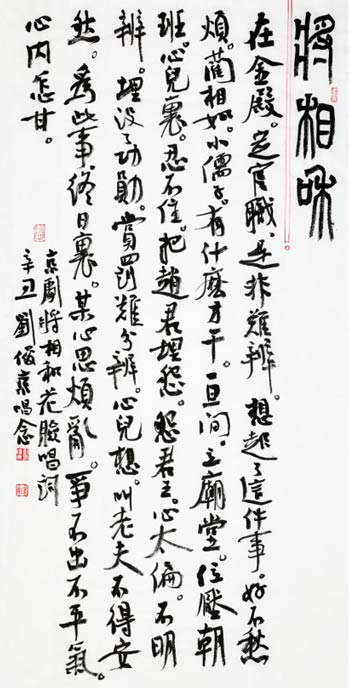 將相和
在金殿。定官職。是非難辨。想起了這件事。好不愁
煩。藺相如。小儒子。有什麼才干。一旦間。立廟堂。位壓朝
班。心兒裏。忍不住。把趙君埋怨。怨君王。心太偏。不明
辨。埋没了功勛。賞罰難分辨。心兒想。叫老夫不得安
然。爲此事。終日裏。某心思煩亂。爭不出不平氣。
心内怎甘。
京劇將相和花臉唱詞
辛丑劉俊京唱念